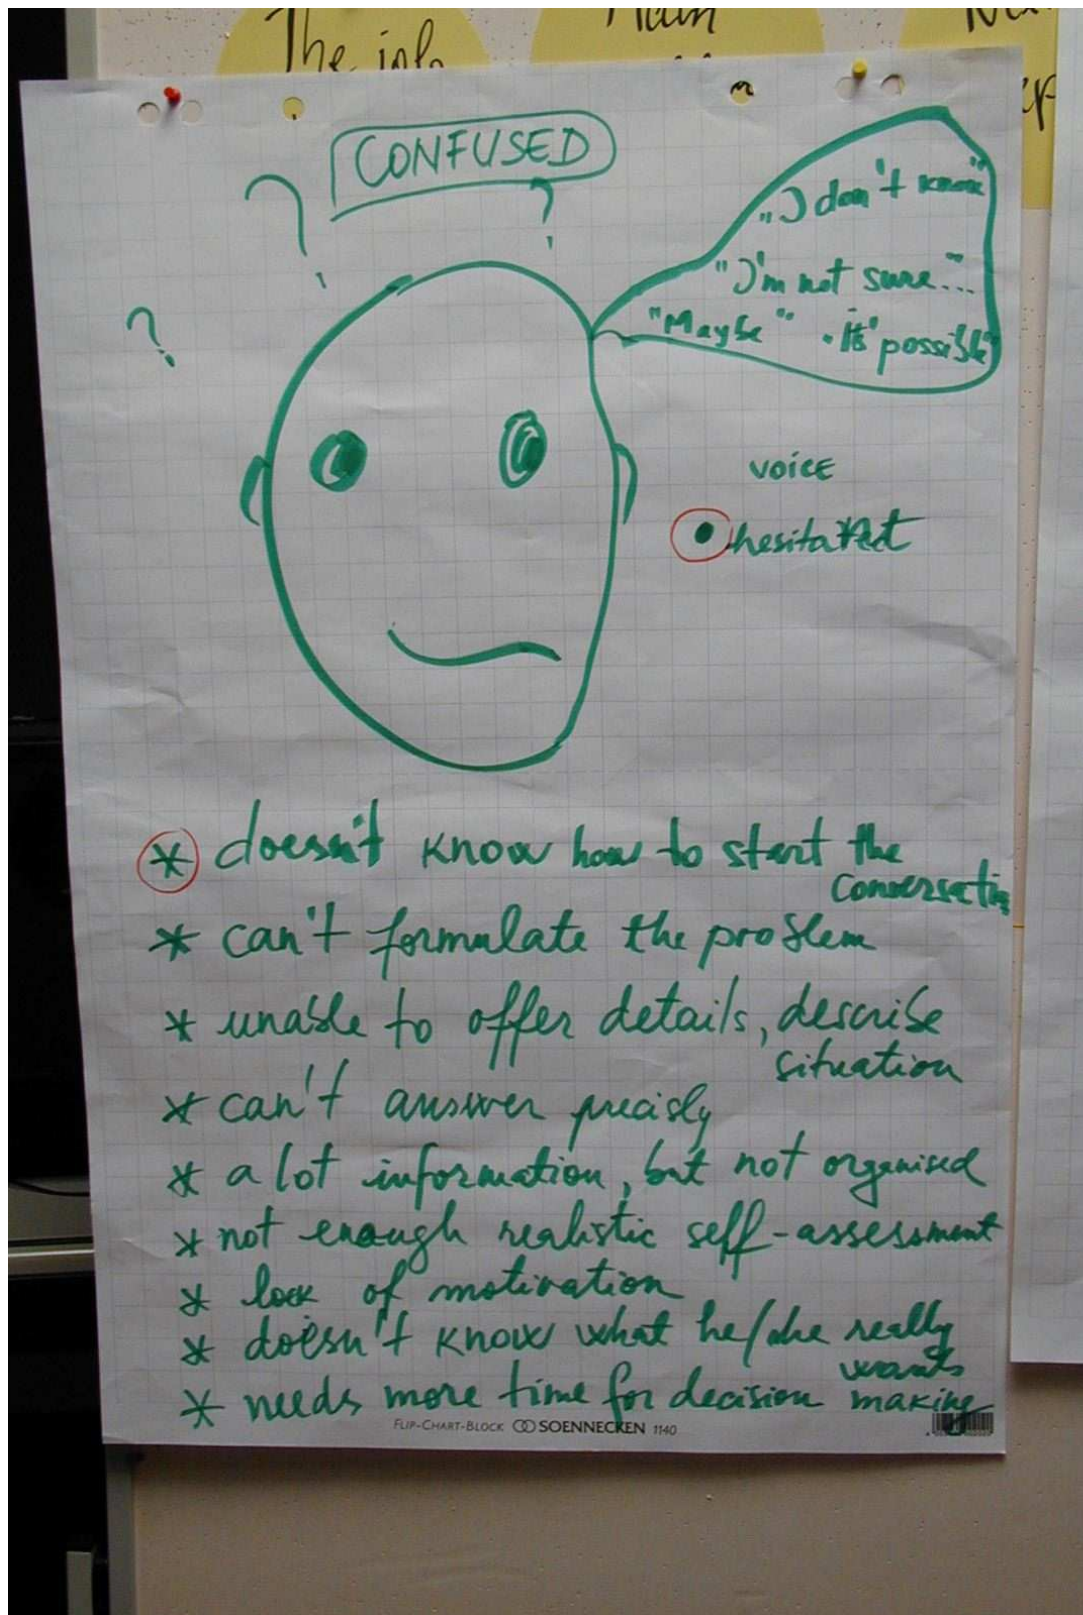 The info
Main
CONFUSED
? ?
?
"I don't know"
"I'm not sure..."
"Maybe" . "It's possible"
voice
• hesitant
* doesn't know how to start the
conversation
* can't formulate the problem
* unable to offer details, describe
situation
* can't answer precisly
* a lot information, but not organised
* not enough realistic self-assessment
* lack of motivation
* doesn't know what he/she really
wants
* needs more time for decision making
FLIP-CHART-BLOCK SOENNECKEN 1140